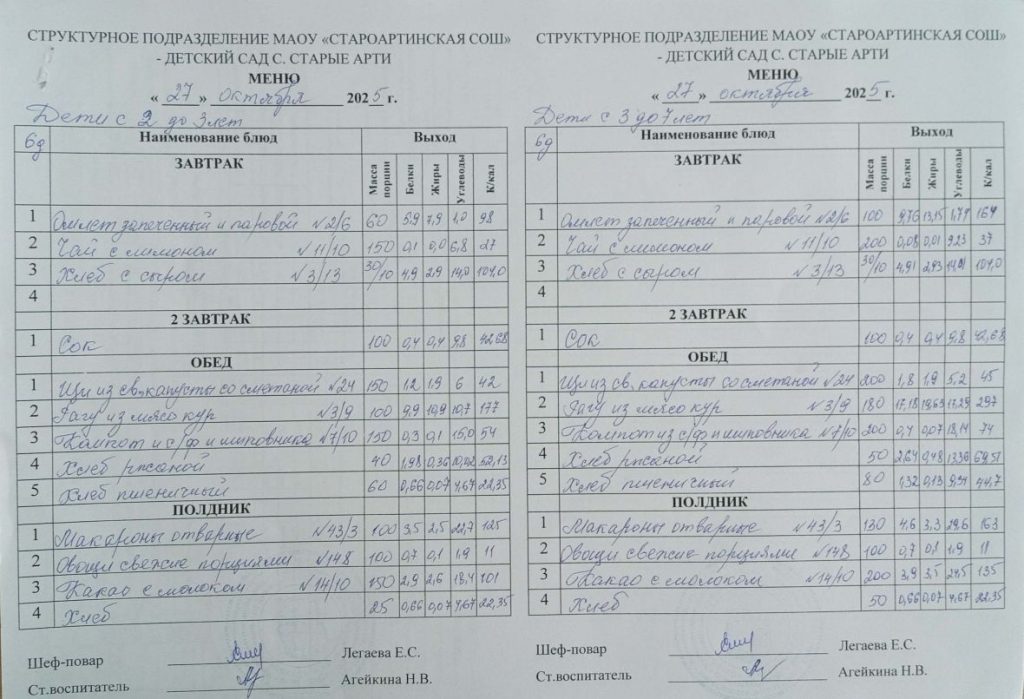 СТРУКТУРНОЕ ПОДРАЗДЕЛЕНИЕ МАОУ «СТАРОАРТИНСКАЯ СОШ»
- ДЕТСКИЙ САД С. СТАРЫЕ АРТИ
МЕНЮ
« 27 » октября 2025 г.
Дети с 2 до 3 лет
6д Наименование блюд Выход
ЗАВТРАК Масса порции Белки Жиры Углеводы К/кал
1 Омлет запеченный и паровой №2/6 60 5,9 7,9 1,0 98
2 Чай с лимоном №11/10 150 0,1 0,0 6,8 27
3 Хлеб с сыром №3/13 30/10 4,9 2,9 14,0 104,0
4
2 ЗАВТРАК
1 Сок 100 0,4 0,4 9,8 42,68
ОБЕД
1 Щи из св. капусты со сметаной №24 150 1,2 1,9 6 42
2 Рагу из мясо кур №3/9 100 9,9 10,9 10,7 177
3 Компот и с/ф и шиповника №7/10 150 0,3 0,1 15,0 54
4 Хлеб ржаной 40 1,98 0,36 10,02 52,13
5 Хлеб пшеничный 60 0,66 0,07 4,67 22,35
ПОЛДНИК
1 Макароны отварные №43/3 100 3,5 2,5 22,7 125
2 Овощи свежие порциями №148 100 0,7 0,1 1,9 11
3 Какао с молоком №14/10 150 2,9 2,6 18,4 101
4 Хлеб 25 0,66 0,07 4,67 22,35
Шеф-повар Легаева Е.С.
Ст.воспитатель Агейкина Н.В.
СТРУКТУРНОЕ ПОДРАЗДЕЛЕНИЕ МАОУ «СТАРОАРТИНСКАЯ СОШ»
- ДЕТСКИЙ САД С. СТАРЫЕ АРТИ
МЕНЮ
« 27 » октября 2025 г.
Дети с 3 до 7 лет
6д Наименование блюд Выход
ЗАВТРАК Масса порции Белки Жиры Углеводы К/кал
1 Омлет запеченный и паровой №2/6 100 9,76 13,15 1,77 164
2 Чай с лимоном №11/10 200 0,08 0,01 9,23 37
3 Хлеб с сыром №3/13 30/10 4,91 2,93 14,01 104,0
4
2 ЗАВТРАК
1 Сок 100 0,4 0,4 9,8 42,68
ОБЕД
1 Щи из св. капусты со сметаной №24 200 1,8 1,9 5,2 45
2 Рагу из мясо кур №3/9 180 17,18 19,63 17,29 297
3 Компот из с/ф и шиповника №7/10 200 0,4 0,07 18,14 74
4 Хлеб ржаной 50 2,64 0,48 13,36 69,51
5 Хлеб пшеничный 80 1,32 0,13 9,34 44,7
ПОЛДНИК
1 Макароны отварные №43/3 130 4,6 3,3 29,6 163
2 Овощи свежие порциями №148 100 0,7 0,1 1,9 11
3 Какао с молоком №14/10 200 3,9 3,5 24,5 135
4 Хлеб 50 0,66 0,07 4,67 22,35
Шеф-повар Легаева Е.С.
Ст.воспитатель Агейкина Н.В.